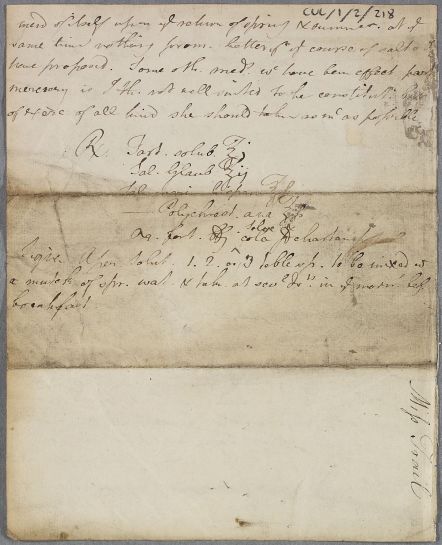 CUL/1/2/218
mend itself upon ye return of spring & summer. at ye
same time nothing prom. better yn ye course of salts I
have propos'd. Some oth. med. wd have been effect. part
mercury is I th. not well suited to her constitut.
of exerc. of all kind she should take as m. as possible
Rx. Tart. solub. ℥j
Sal. Glaub. ℥ij
Polychrest. ana
Aq. font. solve cola
Signe. Aper. Solut. 1. 2. or 3 table sp. to be mixed w
a mutch. of spr. wat. & tak. at sevl dr. in ye morn. bef.
breakfast.
Miss Traill